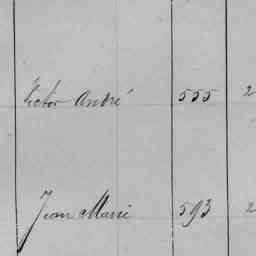 Victor André 555 2
Jean Marie 593 2